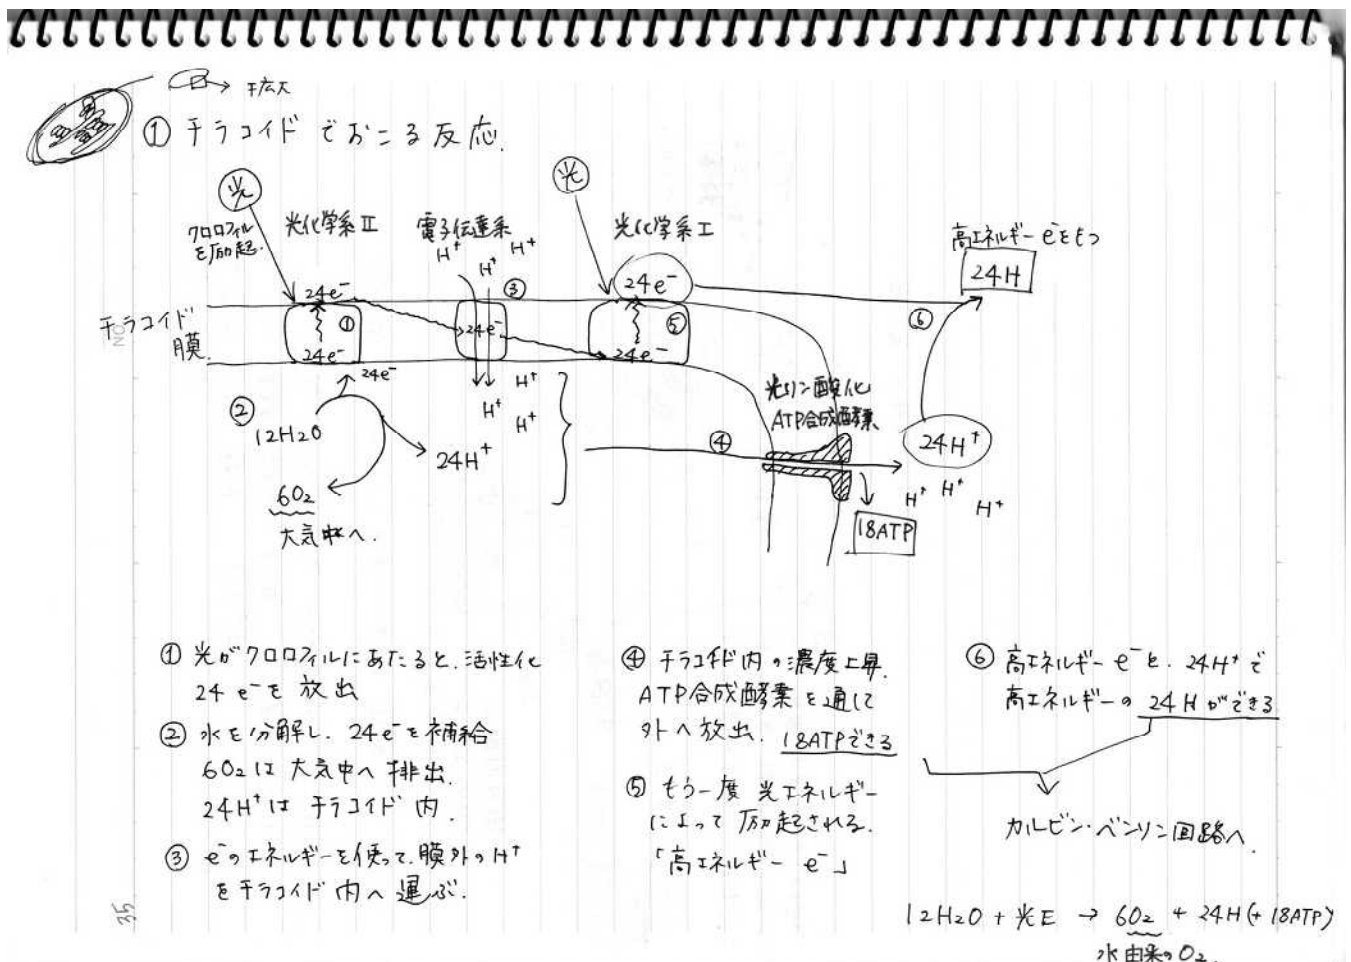 → 拡大
① チラコイドでおこる反応.
光
光
クロロフィル
を励起.
光化学系Ⅱ
電子伝達系
光化学系Ⅰ
高エネルギーe⁻をもつ
24H
H⁺ H⁺ H⁺
③
24e⁻
24e⁻
①
24e⁻
⑤
⑥
チラコイド
膜
24e⁻
24e⁻
24e⁻
H⁺
H⁺
H⁺
H⁺
②
12H2O
24H⁺
6O₂
大気中へ.
④
光リン酸化
ATP合成酵素
24H⁺
H⁺ H⁺ H⁺
18ATP
NO.
① 光がクロロフィルにあたると、活性化
24 e⁻を 放出
② 水を分解し、24e⁻を補給
6O₂は 大気中へ排出.
24H⁺は チラコイド内.
③ e⁻のエネルギーを使って、膜外のH⁺
をチラコイド内へ運ぶ.
④ チラコイド内の濃度上昇.
ATP合成酵素を通して
外へ放出. 18ATPできる
⑤ もう一度 光エネルギー
によって励起される.
「高エネルギー e⁻」
⑥ 高エネルギー e⁻と、24H⁺で
高エネルギーの 24Hができる
カルビン・ベンソン回路へ.
12H2O + 光E → 6O₂ + 24H(+18ATP)
水由来のO₂.
35